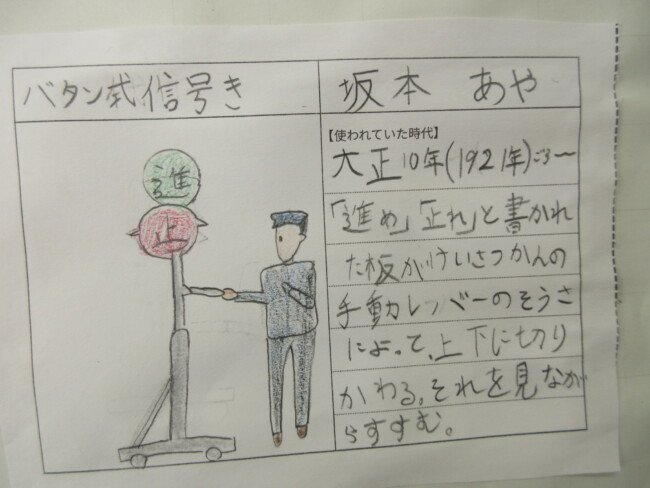 バタン式信号き
坂本 あや
【使われていた時代】
大正10年(1921年)ごろ〜
「進め」「止れ」と書かれ
た板がけいさつかんの
手動レバーのそうさ
によって、上下に切り
かわる。それを見なが
らすすむ。
進
止